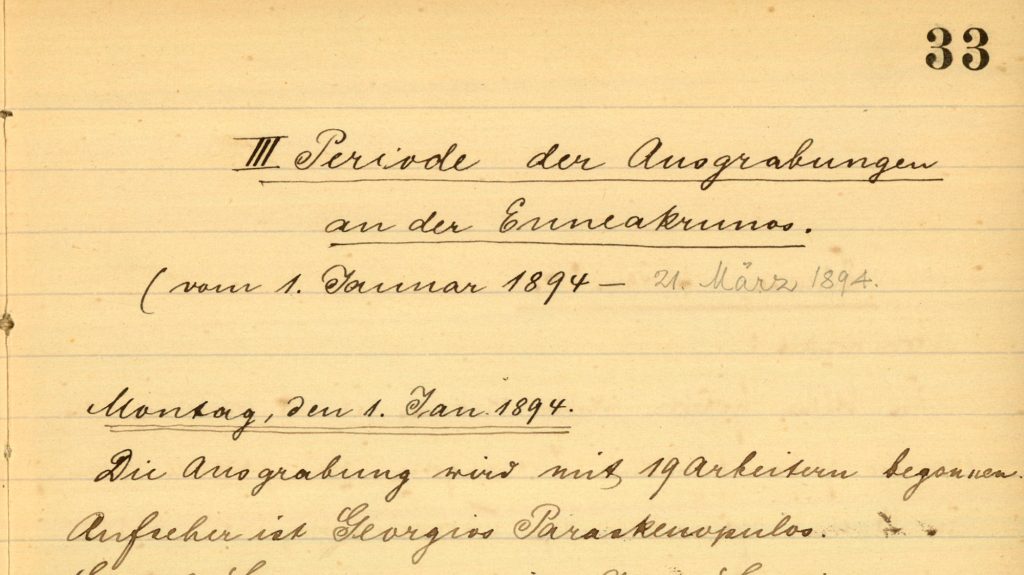 33
III Periode der Ausgrabungen
an der Enneakrunos.
(vom 1. Januar 1894 – 21. März 1894.
Montag, den 1. Jan. 1894.
Die Ausgrabung wird mit 19 Arbeitern begonnen.
Aufseher ist Georgios Paraskenopulos.